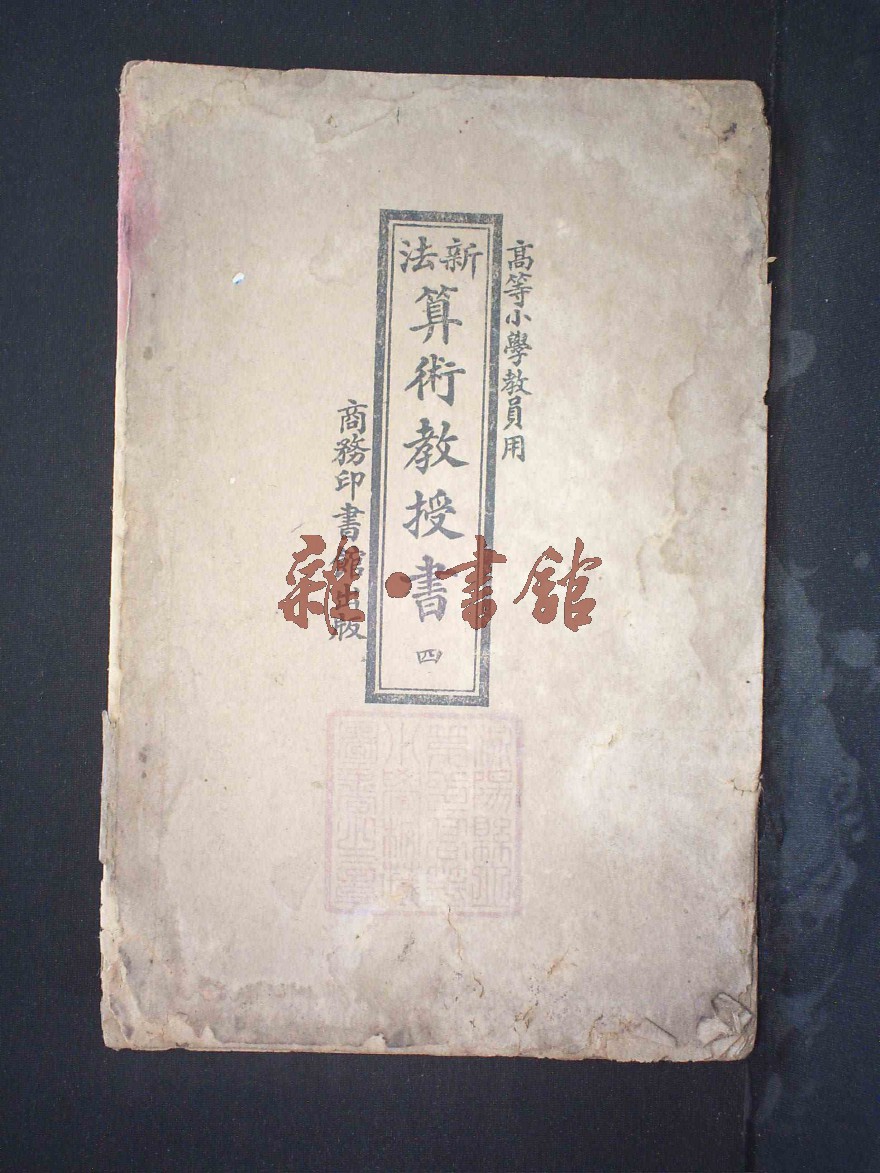 高等小學教員用
新法
算術教授書
四
商務印書館出版
雜·書館